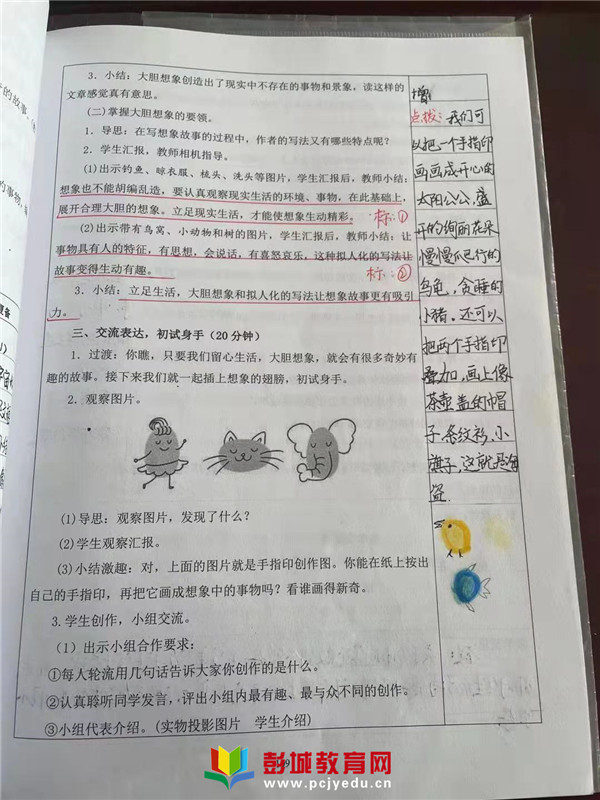 3. 小结：大胆想象创造出了现实中不存在的事物和景象，读这样的
文章感觉真有意思。
(二)掌握大胆想象的要领。
1. 导思：在写想象故事的过程中，作者的写法又有哪些特点呢？
2. 学生汇报，教师相机指导。
(1)出示钓鱼、晾衣服、梳头、洗头等图片，学生汇报后，教师小结：
想象也不能胡编乱造，要认真观察现实生活的环境、事物，在此基础上，
展开合理大胆的想象。立足现实生活，才能使想象生动精彩。
标：①
(2)出示带有鸟窝、小动物和树的图片，学生汇报后，教师小结：让
事物具有人的特征，有思想，会说话，有喜怒哀乐，这种拟人化的写法让
故事变得生动有趣。
标：②
3. 小结：立足生活，大胆想象和拟人化的写法让想象故事更有吸引
力。
三、交流表达，初试身手（20分钟）
1. 过渡：你瞧，只要我们留心生活，大胆想象，就会有很多奇妙有
趣的故事。接下来我们就一起插上想象的翅膀，初试身手。
2. 观察图片。
(1)导思：观察图片，发现了什么？
(2)学生观察汇报。
(3)小结激趣：对，上面的图片就是手指印创作图。你能在纸上按出
自己的手指印，再把它画成想象中的事物吗？看谁画得新奇。
3. 学生创作，小组交流。
(1) 出示小组合作要求：
①每人轮流用几句话告诉大家你创作的是什么。
②认真聆听同学发言，评出小组内最有趣、最与众不同的创作。
③小组代表介绍。(实物投影图片 学生介绍)
增
点拨：我们可
以把一个手指印
画画成开心的
太阳公公，盛
开的绚丽花朵
慢慢爬行的
乌龟，贪睡的
小猪。还可以
把两个手指印
叠加，画上像
茶壶盖的帽
子，条纹衫，小
旗子，这就是海
盗.
彭城教育网
www.pcjyedu.cn